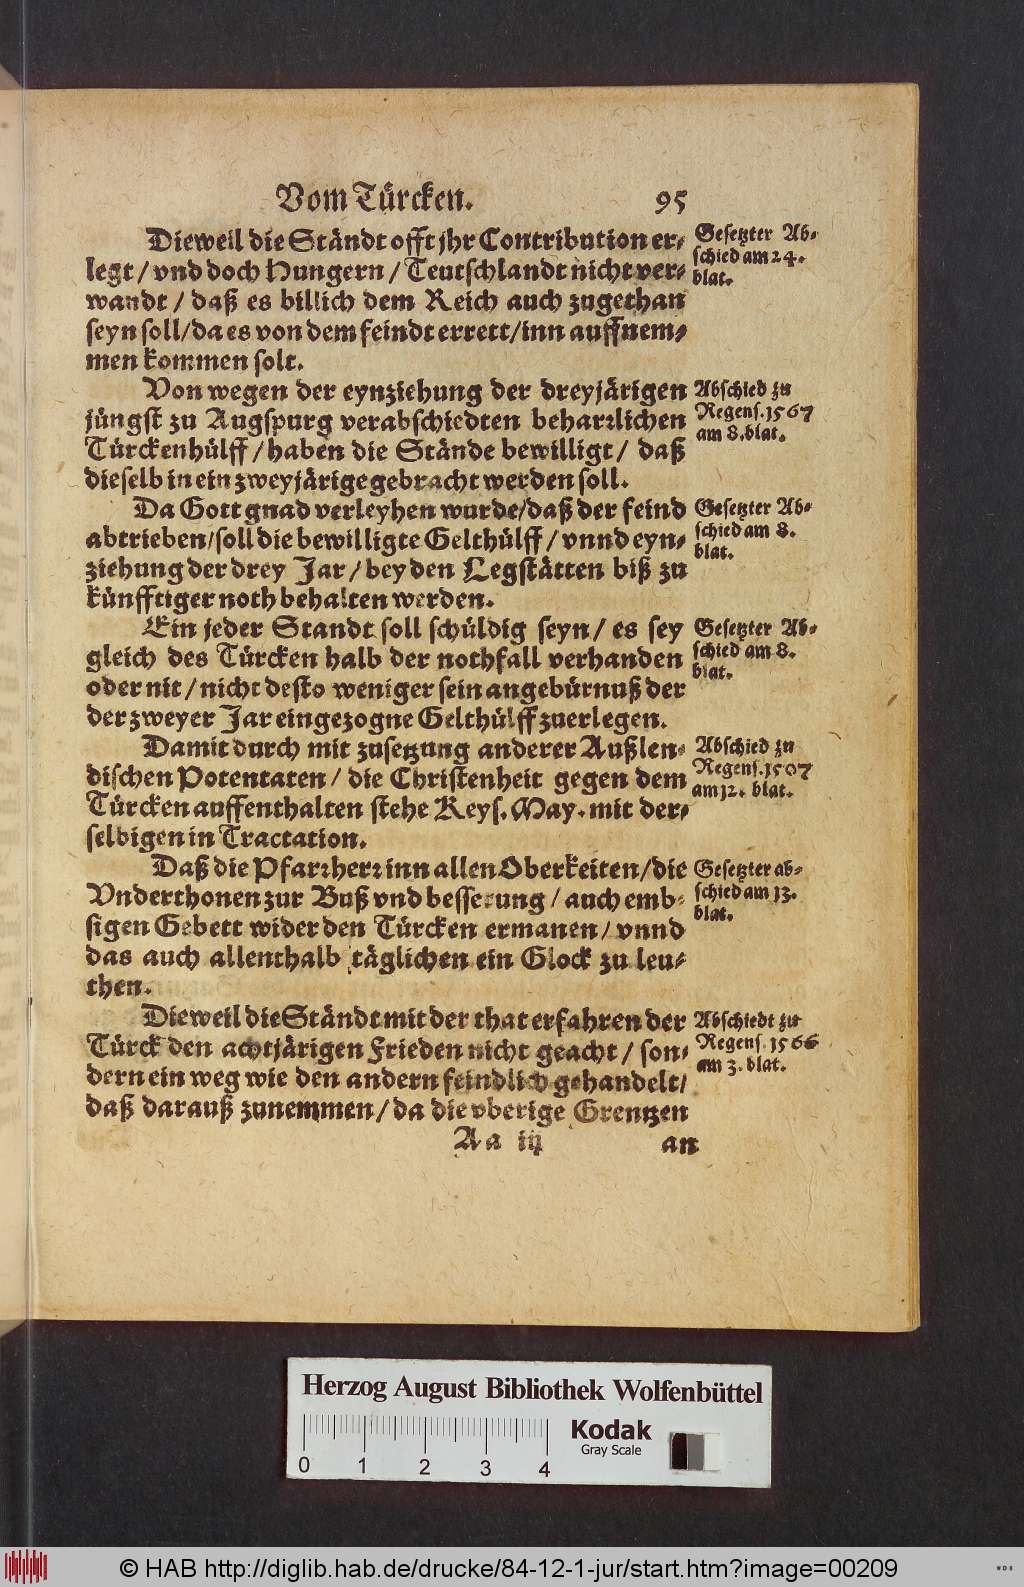 Vom Türcken. 95
Dieweil die Ständt offt jhr Contribution er-
legt / vnd doch Hungern / Teutschlandt nicht ver-
wandt / daß es billich dem Reich auch zugethan
seyn soll / da es von dem feindt errett / inn auffnem-
men kommen solt.
Gesetzter Ab-
schied am 24.
blat.
Von wegen der eynziehung der dreyjärigen
jüngst zu Augspurg verabschiedten beharrlichen
Türckenhülff / haben die Stände bewilligt / daß
dieselb in ein zweyjärige gebracht werden soll.
Abschied zu
Regens. 1567
am 8. blat.
Da Gott gnad verleyhen wurde / daß der feind
abtrieben / soll die bewilligte Gelthülff / vnnd eyn-
ziehung der drey Jar / bey den Legstätten biß zu
künfftiger noth behalten werden.
Gesetzter Ab-
schied am 8.
blat.
Ein jeder Standt soll schüldig seyn / es sey
gleich des Türcken halb der nothfall verhanden
oder nit / nicht desto weniger sein angebürnuß der
der zweyer Jar eingezogne Gelthülff zuerlegen.
Gesetzter Ab-
schied am 8.
blat.
Damit durch mit zusetzung anderer Außlen-
dischen Potentaten / die Christenheit gegen dem
Türcken auffenthalten stehe Keys. May. mit der-
selbigen in Tractation.
Abschied zu
Regens. 1507
am 12. blat.
Daß die Pfarrherr inn allen Oberkeiten / die
Vnderthonen zur Buß vnd besserung / auch emb-
sigen Gebett wider den Türcken ermanen / vnnd
das auch allenthalb täglichen ein Glock zu leu-
then.
Gesetzter ab-
schied am 13.
blat.
Dieweil die Ständt mit der that erfahren der
Türck den achtjärigen Frieden nicht geacht / son-
dern ein weg wie den andern feindlich gehandelt /
daß darauß zunemmen / da die vberige Grentzen
Abschiedt zu
Regens. 1566
am 3. blat.
Aa iij an
Herzog August Bibliothek Wolfenbüttel
Kodak
Gray Scale
0 1 2 3 4
© HAB http://diglib.hab.de/drucke/84-12-1-jur/start.htm?image=00209